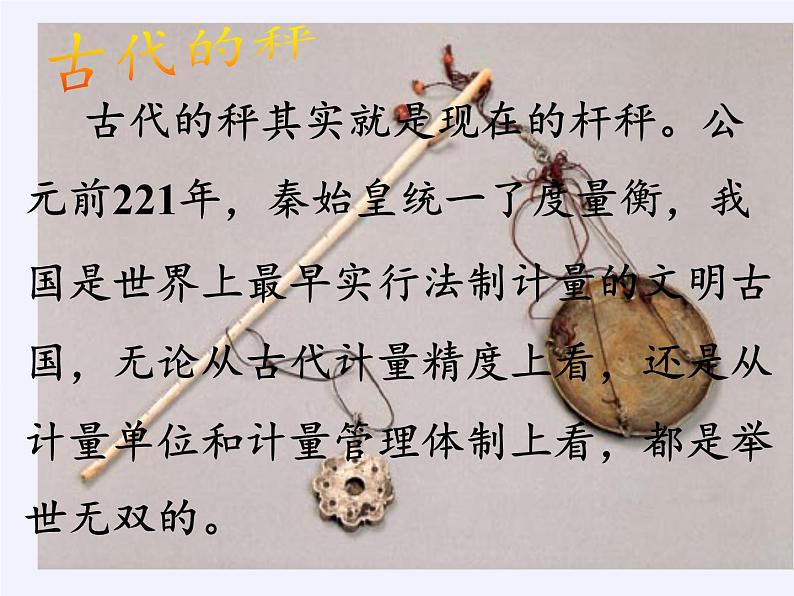 古代的秤
古代的秤其实就是现在的杆秤。公
元前221年，秦始皇统一了度量衡，我
国是世界上最早实行法制计量的文明古
国，无论从古代计量精度上看，还是从
计量单位和计量管理体制上看，都是举
世无双的。